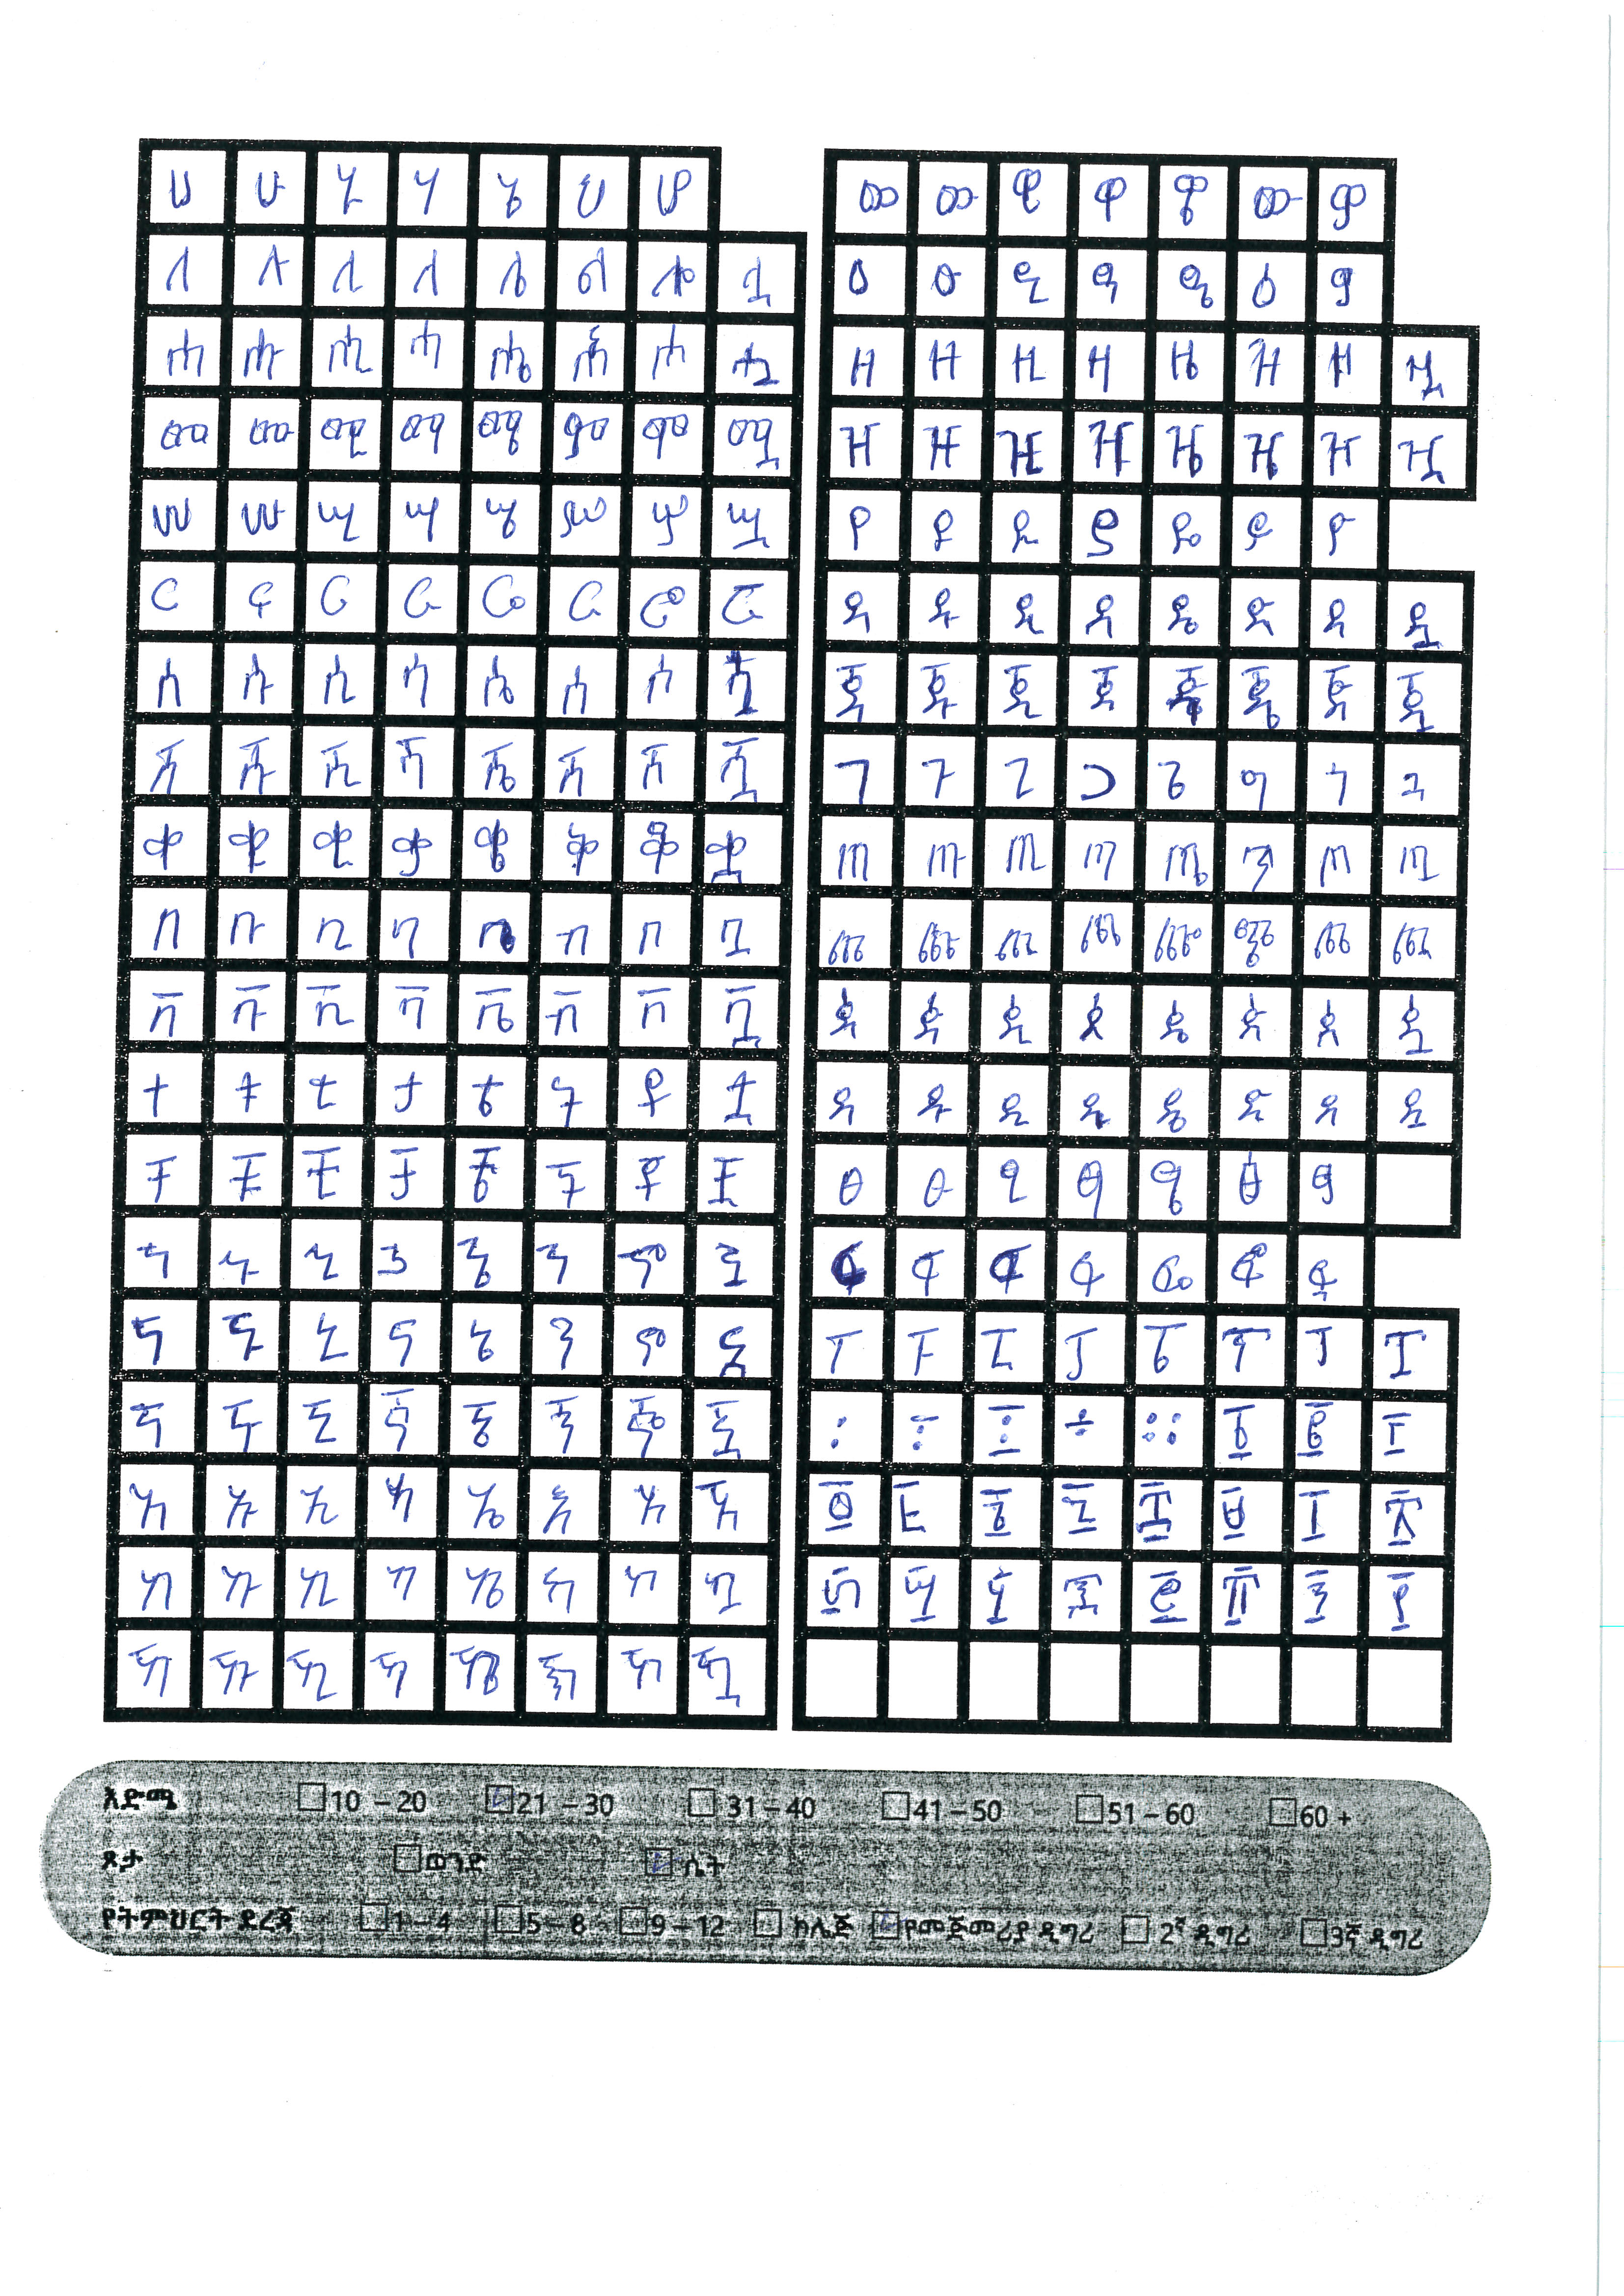 ሀ ሁ ሂ ሃ ሄ ህ ሆ
ለ ሉ ሊ ላ ሌ ል ሎ ሏ
ሐ ሑ ሒ ሓ ሔ ሕ ሖ ሗ
መ ሙ ሚ ማ ሜ ም ሞ ሟ
ሠ ሡ ሢ ሣ ሤ ሥ ሦ ሧ
ረ ሩ ሪ ራ ሬ ር ሮ ሯ
ሰ ሱ ሲ ሳ ሴ ስ ሶ ሷ
ሸ ሹ ሺ ሻ ሼ ሽ ሾ ሿ
ቀ ቁ ቂ ቃ ቄ ቅ ቆ ቋ
በ ቡ ቢ ባ ቤ ብ ቦ ቧ
ቨ ቩ ቪ ቫ ቬ ቭ ቮ ቯ
ተ ቱ ቲ ታ ቴ ት ቶ ቷ
ቸ ቹ ቺ ቻ ቼ ች ቾ ቿ
ኀ ኁ ኂ ኃ ኄ ኅ ኆ ኋ
ነ ኑ ኒ ና ኔ ን ኖ ኗ
ኘ ኙ ኚ ኛ ኜ ኝ ኞ ኟ
አ ኡ ኢ ኣ ኤ እ ኦ ኧ
ከ ኩ ኪ ካ ኬ ክ ኮ ኳ
ኸ ኹ ኺ ኻ ኼ ኽ ኾ ዃ
ወ ዉ ዊ ዋ ዌ ው ዎ
ዐ ዑ ዒ ዓ ዔ ዕ ዖ
ዘ ዙ ዚ ዛ ዜ ዝ ዞ ዟ
ዠ ዡ ዢ ዣ ዤ ዥ ዦ ዧ
የ ዩ ዪ ያ ዬ ይ ዮ
ደ ዱ ዲ ዳ ዴ ድ ዶ ዷ
ጀ ጁ ጂ ጃ ጄ ጆ ጇ
ገ ጉ ጊ ጋ ጌ ግ ጎ ጓ
ጠ ጡ ጢ ጣ ጤ ጥ ጦ ጧ
ጨ ጩ ጪ ጫ ጬ ጭ ጮ ጯ
ጰ ጱ ጲ ጳ ጴ ጵ ጶ ጷ
ጸ ጹ ጺ ጻ ጼ ጽ ጾ ጿ
ፀ ፁ ፂ ፃ ፄ ፅ ፆ
ፈ ፉ ፊ ፋ ፌ ፍ ፎ
ፐ ፑ ፒ ፓ ፔ ፕ ፖ ፗ
፡ ፣ ÷ ። ፩ ፪ ፫
፬ ፭ ፮ ፯ ፰ ፱ ፲ ፳
፴ ፵ ፶ ፷ ፸ ፹ ፺ ፻
እድሜ 10 – 20 21 – 30 31 – 40 41 – 50 51 – 60 60 +
ጾታ ወንድ ሴት
የትምህርት ደረጃ 1 – 4 5 – 8 9 – 12 ኮሌጅ የመጀመሪያ ዲግሪ 2ኛ ዲግሪ 3ኛ ዲግሪ